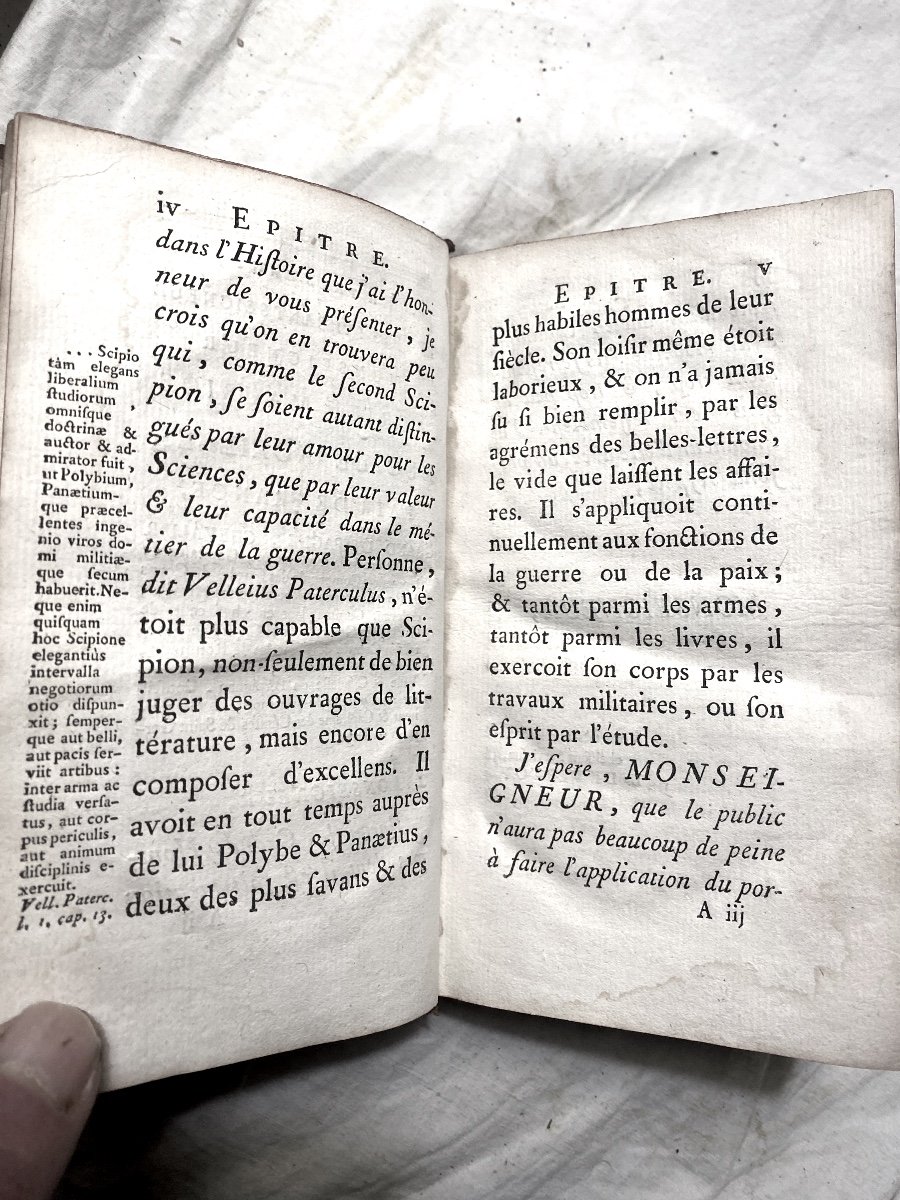 iv EPITRE.
dans l'Hiſtoire que j'ai l'hon-
neur de vous préſenter, je
crois qu'on en trouvera peu
qui, comme le ſecond Sci-
pion, ſe ſoient autant diſtin-
gués par leur amour pour les
Sciences, que par leur valeur
& leur capacité dans le mé-
tier de la guerre. Perſonne,
dit Velleius Paterculus, n'é-
toit plus capable que Sci-
pion, non-ſeulement de bien
juger des ouvrages de lit-
térature, mais encore d'en
compoſer d'excellens. Il
avoit en tout temps auprès
de lui Polybe & Panætius,
deux des plus ſavans & des
... Scipio
tàm elegans
liberalium
ſtudiorum,
omniſque
doctrinæ &
auctor & ad-
mirator fuit,
ut Polybium,
Panætium-
que præcel-
lentes inge-
nio viros do-
mi militiæ-
que ſecum
habuerit. Ne-
que enim
quiſquam
hoc Scipione
elegantiùs
intervalla
negotiorum
otio diſpun-
xit; ſemper-
que aut belli,
aut pacis ſer-
viit artibus:
inter arma ac
ſtudia verſa-
tus, aut cor-
pus periculis,
aut animum
diſciplinis e-
xercuit.
Vell. Paterc.
l. 1, cap. 13.
EPITRE. v
plus habiles hommes de leur
ſiècle. Son loiſir même étoit
laborieux, & on n'a jamais
ſu ſi bien remplir, par les
agrémens des belles-lettres,
le vide que laiſſent les affai-
res. Il s'appliquoit conti-
nuellement aux fonctions de
la guerre ou de la paix;
& tantôt parmi les armes,
tantôt parmi les livres, il
exercoit ſon corps par les
travaux militaires, ou ſon
eſprit par l'étude.
J'eſpere, MONSEI-
GNEUR, que le public
n'aura pas beaucoup de peine
à faire l'application du por-
A iij